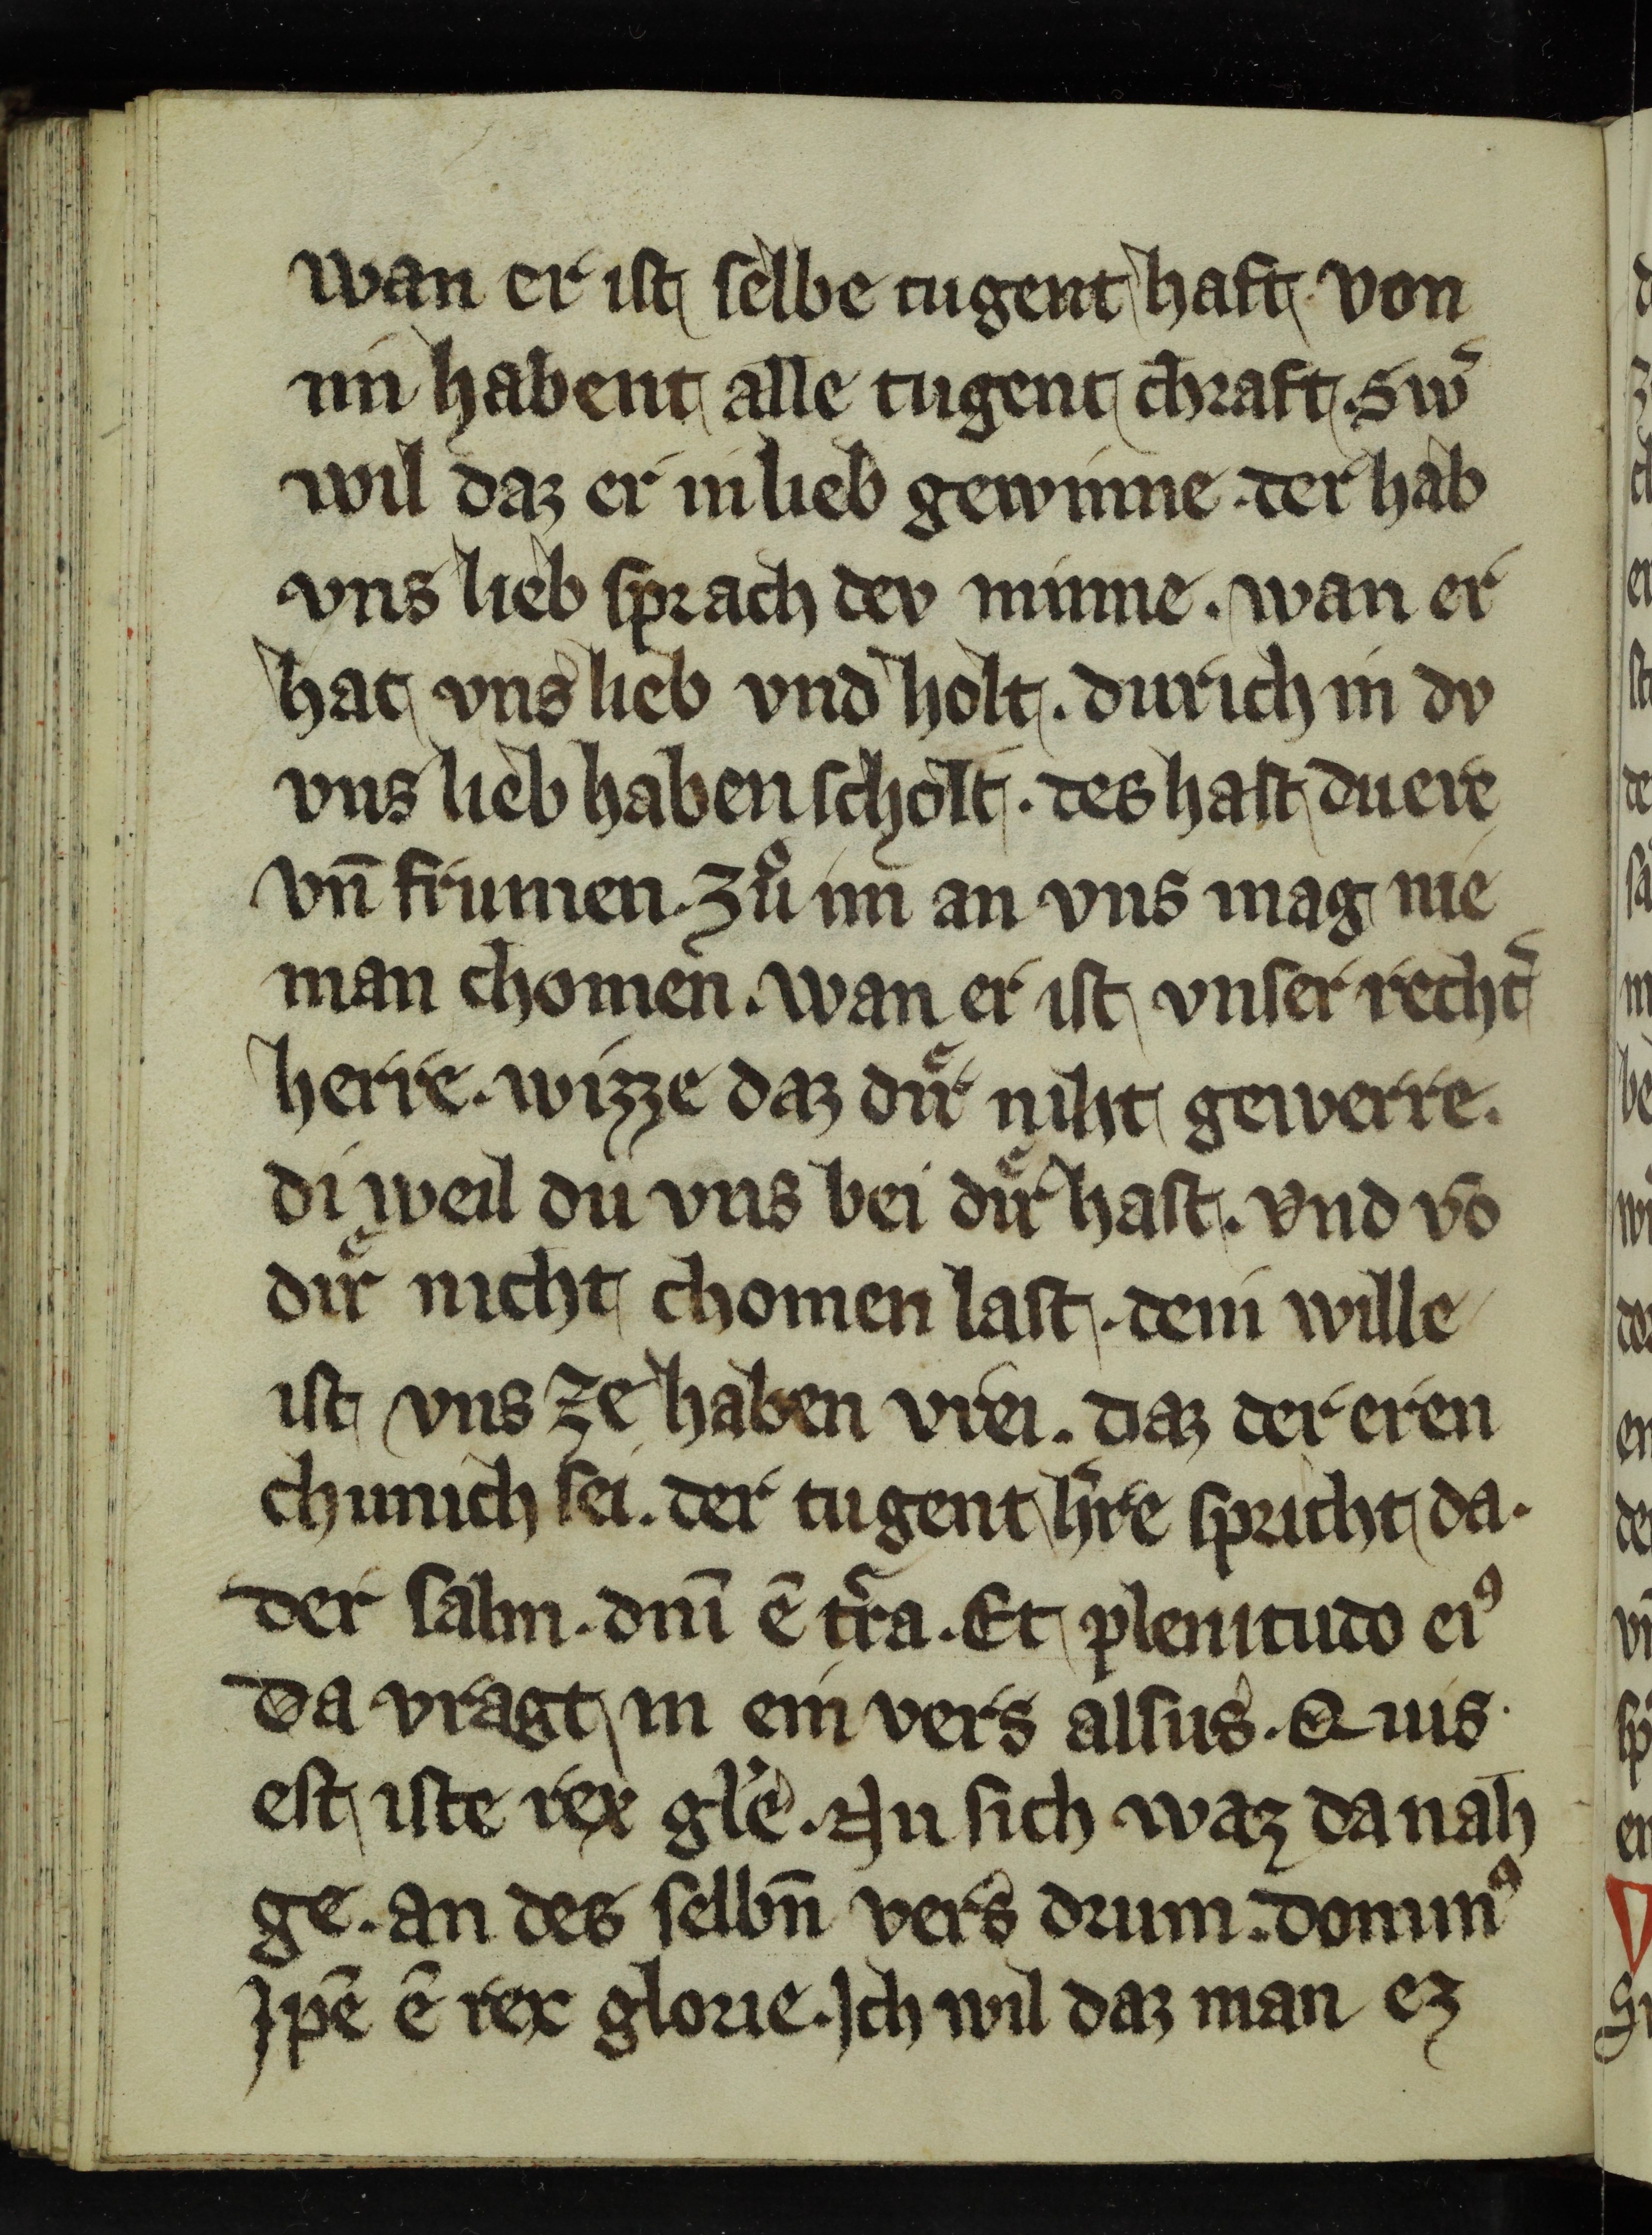 wan er ist selbe tugent haft. von
im habent alle tugent chraft. Sw̄
wil daz er in lieb gewinne. der hab
vns lieb sprach dev minne. wan er
hat vns lieb vnd holt. durich in dv
vns lieb haben scholt. des hast du ere
vn̄ frumen. Zuͦ im an vns mag nie
man chomen. wan er ist vnser recht̄
herre. wizze daz duͤr niht gewerre.
di weil du vns bei duͤr hast. vnd vō
diͤr nicht chomen last. dein wille
ist vns ze haben vrei. daz der eren
chunich sei. der tugent h̄re spricht da.
der salm. dn̄i ē t̄ra. Et plenitudo eiꝰ
Da vragt in ein vers alsus. Quis
est iste rex gl̄e. Nu sich waz da nah
ge. an des selbn̄ vers drum. dominꝰ
Jpē ē rex glorie. Jch wil daz man ez